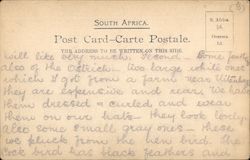 SOUTH AFRICA.
Post Card–Carte Postale.
THE ADDRESS TO BE WRITTEN ON THIS SIDE.
will like very much. Second - Some feathers
also of the Ostrich. Two large white ones
which I got from a farm near
they are expensive and rare. We have
them dressed & curled and wear
them on our hats - they look lovely.
Also some small gray ones - these
we pluck from the hen bird. The
cock bird has black feathers